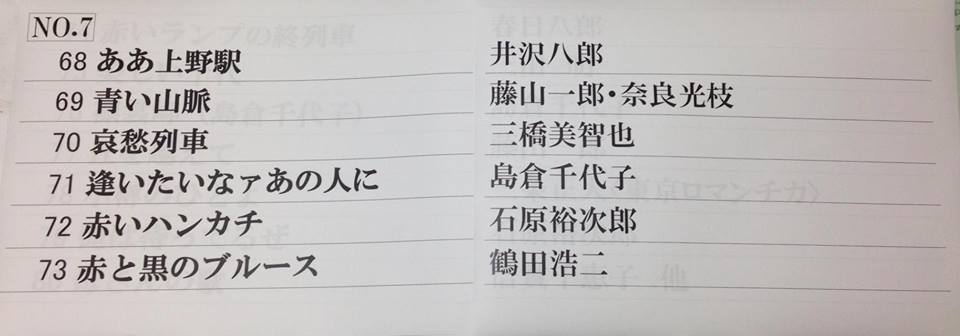 NO.7
68 ああ上野駅 井沢八郎
69 青い山脈 藤山一郎・奈良光枝
70 哀愁列車 三橋美智也
71 逢いたいなァあの人に 島倉千代子
72 赤いハンカチ 石原裕次郎
73 赤と黒のブルース 鶴田浩二